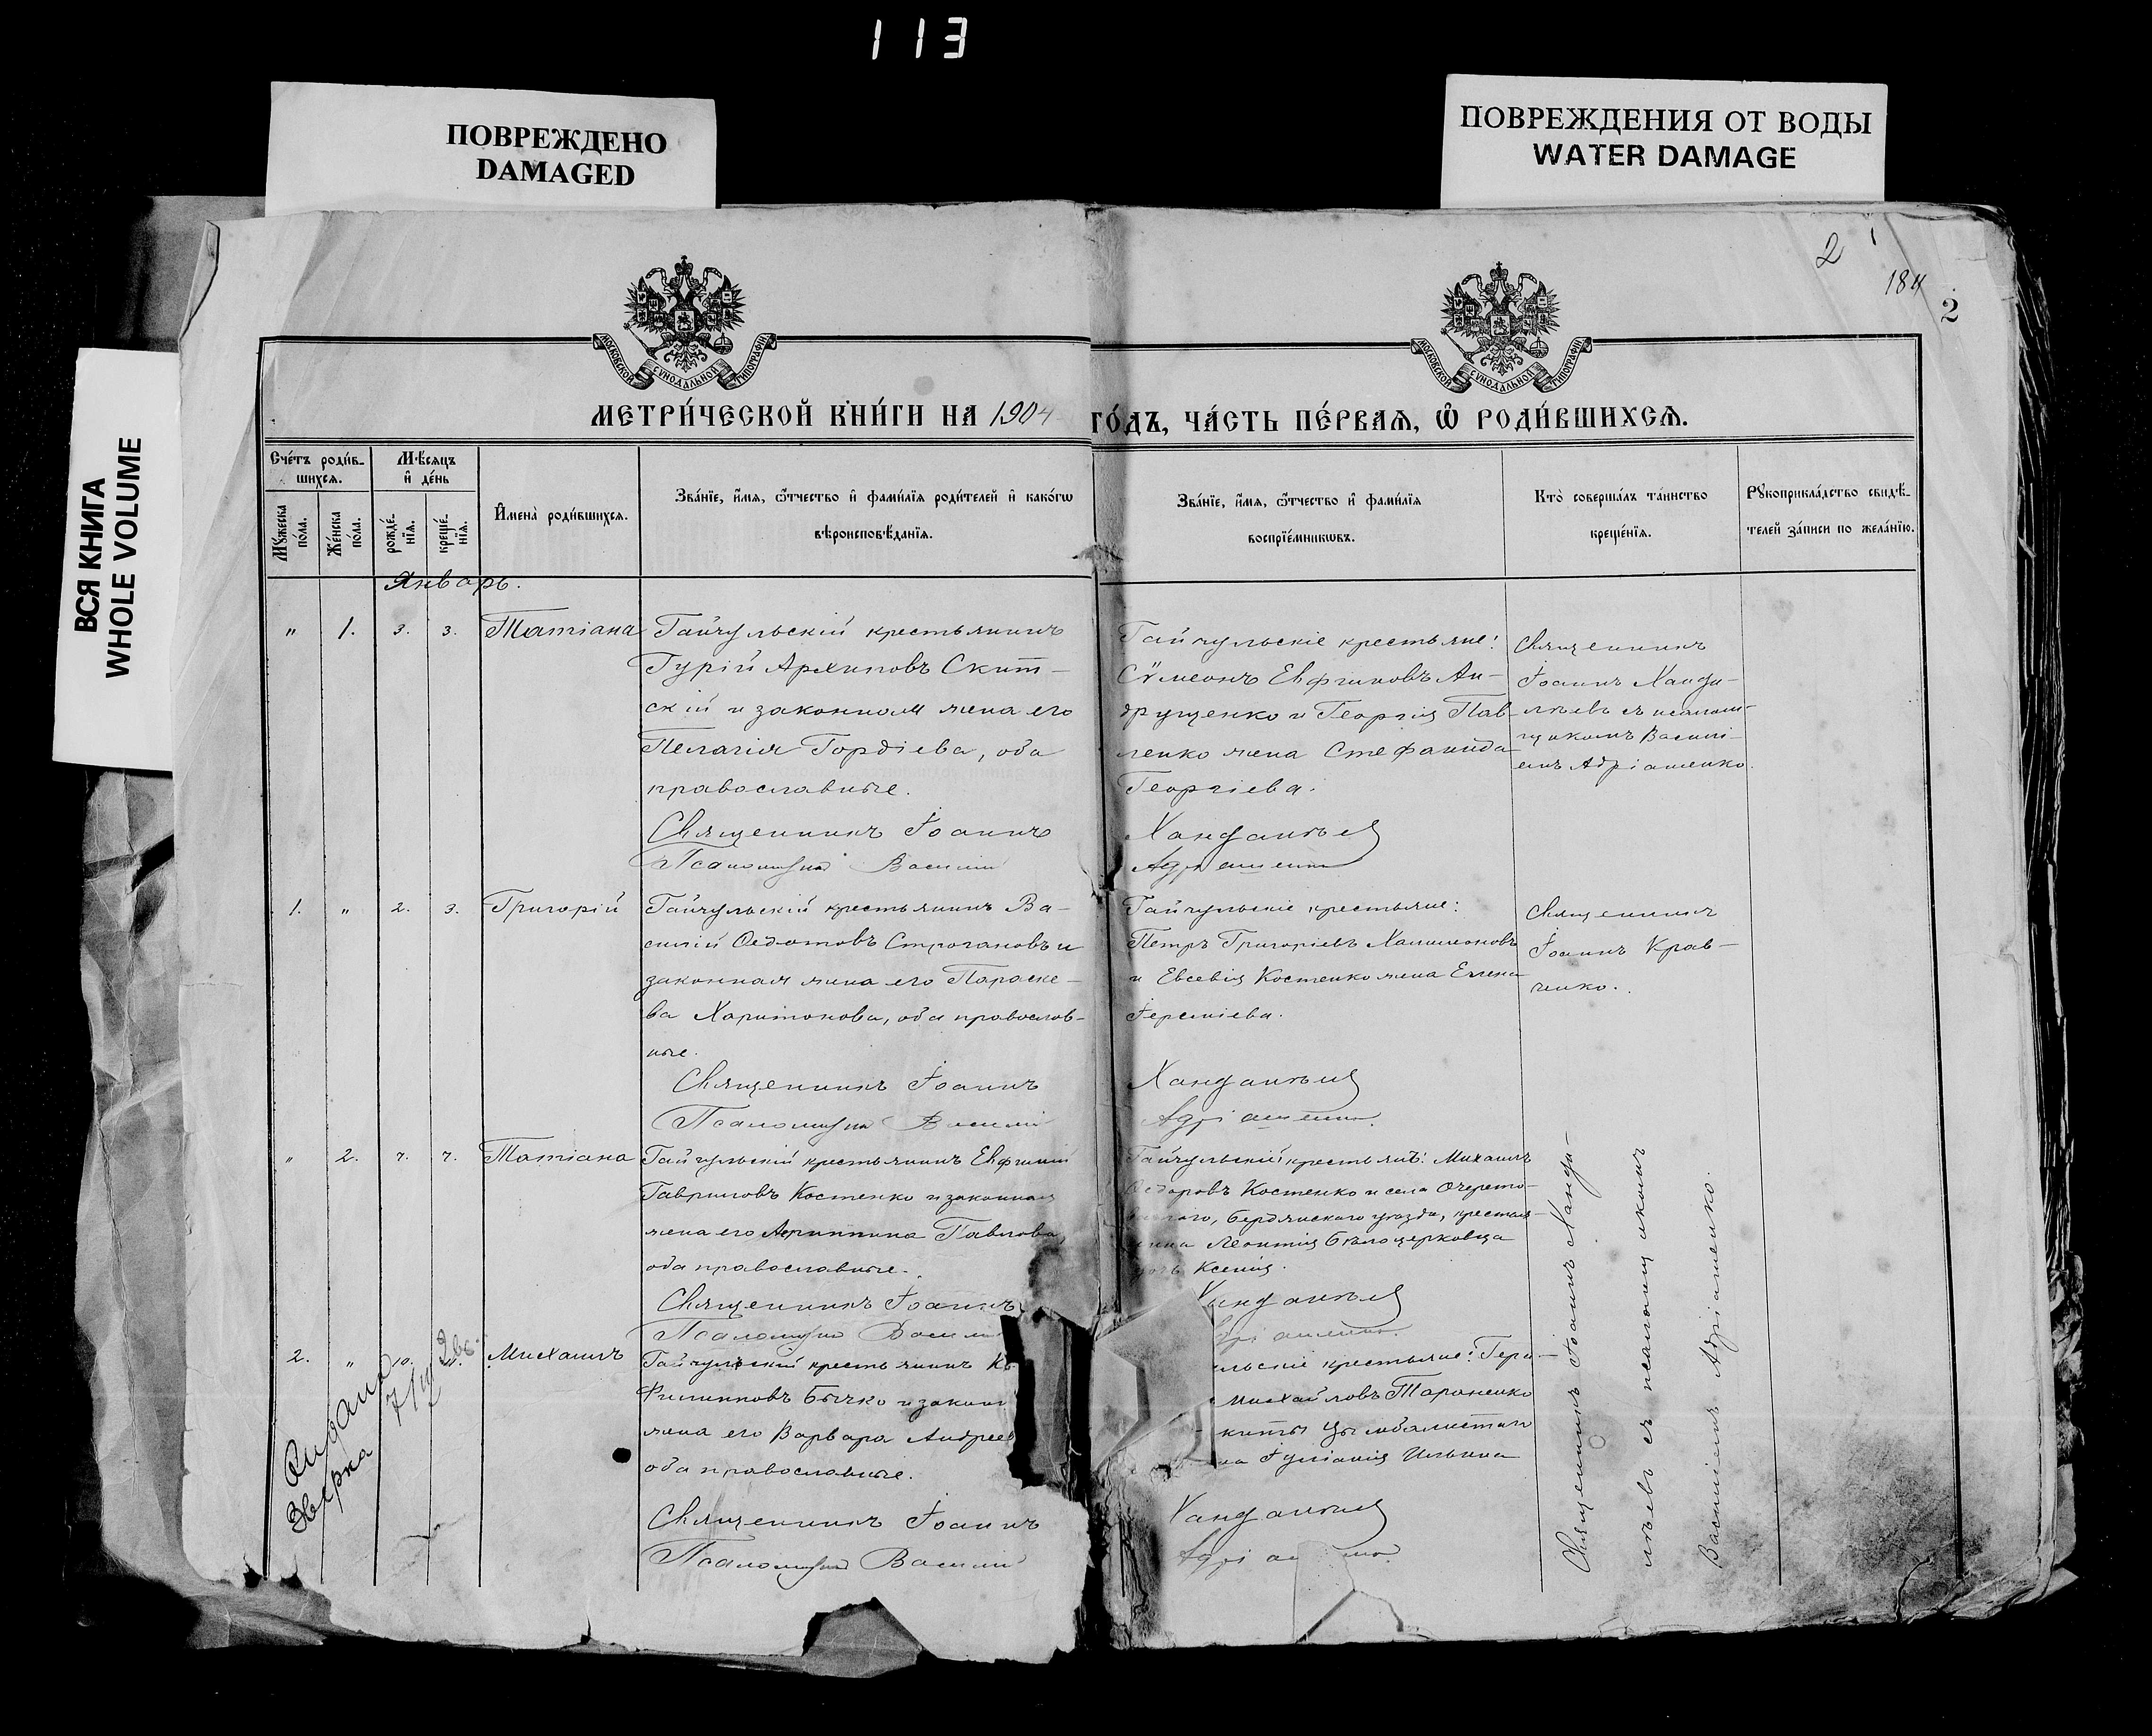 113
ПОВРЕЖДЕНО
DAMAGED
ПОВРЕЖДЕНИЯ ОТ ВОДЫ
WATER DAMAGE
ВСЯ КНИГА
WHOLE VOLUME
2
184
2
МОСКОВСКОЙ СѴНОДАЛЬНОЙ ТИПОГРАФІИ
МОСКОВСКОЙ СѴНОДАЛЬНОЙ ТИПОГРАФІИ
МЕТРИ́ЧЕСКОЙ КНИ́ГИ НА 1904 ГО́ДЪ, ЧА́СТЬ ПЕ́РВАѦ, Ѡ҆ РОДИ́ВШИХСѦ.
Сче́тъ роди́в-
шихсѧ.
Мꙋ́жеска по́ла.
Же́нска по́ла.
Мѣ́сѧцъ
и҆ де́нь
рожде́-
нїѧ.
креще́-
нїѧ.
И҆мена̀ роди́вшихсѧ.
Зва́нїе, и҆́мѧ, ѻ҆́тчество и҆ фами́лїѧ роди́телей и҆ како́гѡ
вѣроисповѣ́данїѧ.
Зва́нїе, и҆́мѧ, ѻ҆́тчество и҆ фами́лїѧ
воспрїе́мникѡвъ.
Кто̀ соверша́лъ та́инство
креще́нїѧ.
Рꙋкоприкла́дство свидѣ́-
телей за́писи по жела́нїю.
Январь.
" 1. 3. 3. Татіана
Гайчульскій крестьянинъ
Гурій Архиповъ Скит-
скій и законная жена его
Пелагія Гордіева, оба
православные.
Священникъ Іоаннъ
Псаломщикъ Василій
Гайчульскіе крестьяне:
Сѵмеонъ Евфимовъ Ан-
друщенко и Георгія Пав-
ленко жена Стефанида
Георгіева.
Ханданѣев
Адріяшенко
Священникъ
Іоаннъ Ханда-
нѣевъ съ псалом-
щикомъ Василі-
емъ Адріашенко.
1. " 2. 3. Григорій
Гайчульскій крестьянинъ Ва-
силій Ѳедотовъ Строгановъ и
законная жена его Параске-
ва Харитонова, оба православ-
ные.
Священникъ Іоаннъ
Псаломщикъ Василій
Гайчульскіе крестьяне:
Петръ Григоріевъ Халимоновъ
и Евсевія Костенко жена Елена
Іереміева.
Ханданѣев
Адріяшенко.
Священникъ
Іоаннъ Крав-
ченко.
" 2. 7. 7. Татіана
Гайчульскій крестьянинъ Евфимій
Гавриловъ Костенко и законная
жена его Агриппина Павлова,
оба православные.
Священникъ Іоаннъ
Псаломщикъ Васил
Гайчульскій крестьян: Михаилъ
Ѳедоровъ Костенко и села Очерето-
Бердянскаго уѣзда, крестья-
нина Леонтія Бѣлоцерковца
дочь Ксенія.
Ханданѣев
2. " 10. Михаилъ
Гайчульскій крестьянинъ
Филипповъ Бычко и закон
жена его Варвара Андрее
оба православные.
Священникъ Іоаннъ
Псаломщикъ Василій
льскіе крестьяне: Гера-
Михайловъ Тараненко
киты Цымбалистаго
на Іуліанія Ильина
Ханданѣев
Священникъ Іоаннъ Ханда-
нѣевъ съ псаломщикомъ
Василіемъ Адріашенко.